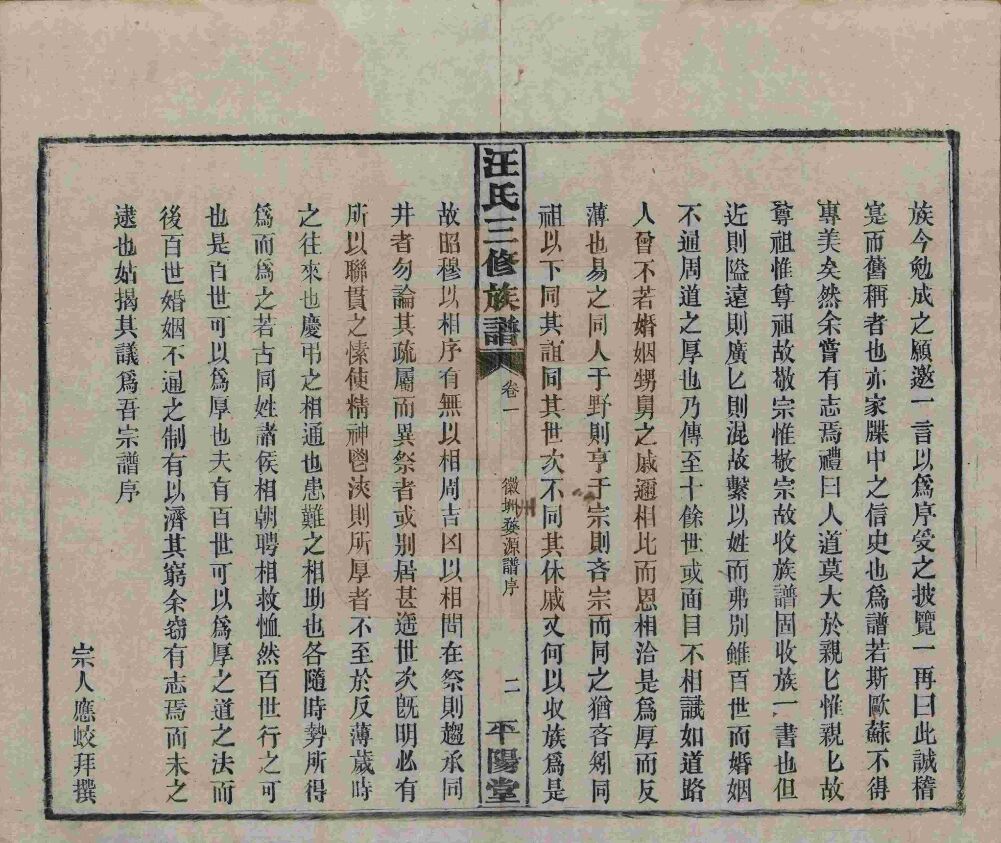 族今勉成之願邀一言以爲序受之披覽一再曰此誠稽
寔而舊稱者也亦家牒中之信史也爲譜若斯歐蘇不得
專美矣然余嘗有志焉禮曰人道莫大於親匕惟親匕故
尊祖惟尊祖故敬宗惟敬宗故收族譜固收族一書也但
近則隘遠則廣匕則混故繫以姓而弗别雖百世而婚姻
不通周道之厚也乃傳至十餘世或面目不相識如道路
人曾不若婚姻甥舅之戚邇相比而恩相洽是爲厚而反
薄也易之同人于野則亨于宗則吝宗而同之猶吝矧同
祖以下同其誼同其世次不同其休戚又何以収族爲是
汪氏三修族譜
卷一
徽州婺源譜序
二
平陽堂
故昭穆以相序有無以相周吉凶以相問在祭則趨承同
井者勿論其疏屬而異祭者或别居甚遙世次旣明必有
所以聯貫之愫使精神鬯浹則所厚者不至於反薄歲時
之往來也慶弔之相通也患難之相助也各隨時勢所得
爲而爲之若古同姓諸侯相朝聘相救恤然百世行之可
也是百世可以爲厚也夫有百世可以爲厚之道之法而
後百世婚姻不通之制有以濟其窮余窃有志焉而未之
逮也姑揭其議爲吾宗譜序
宗人應蛟拜撰